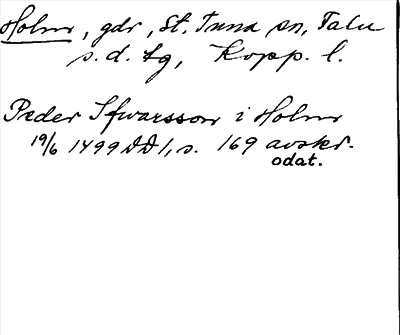 Holm, gdr, St. Tuna sn, Falu
s. d. lg, Kopp. l.
Peder Ifwarsson i Holm
19/6 1499 DD 1, s. 169 avskr.
odat.